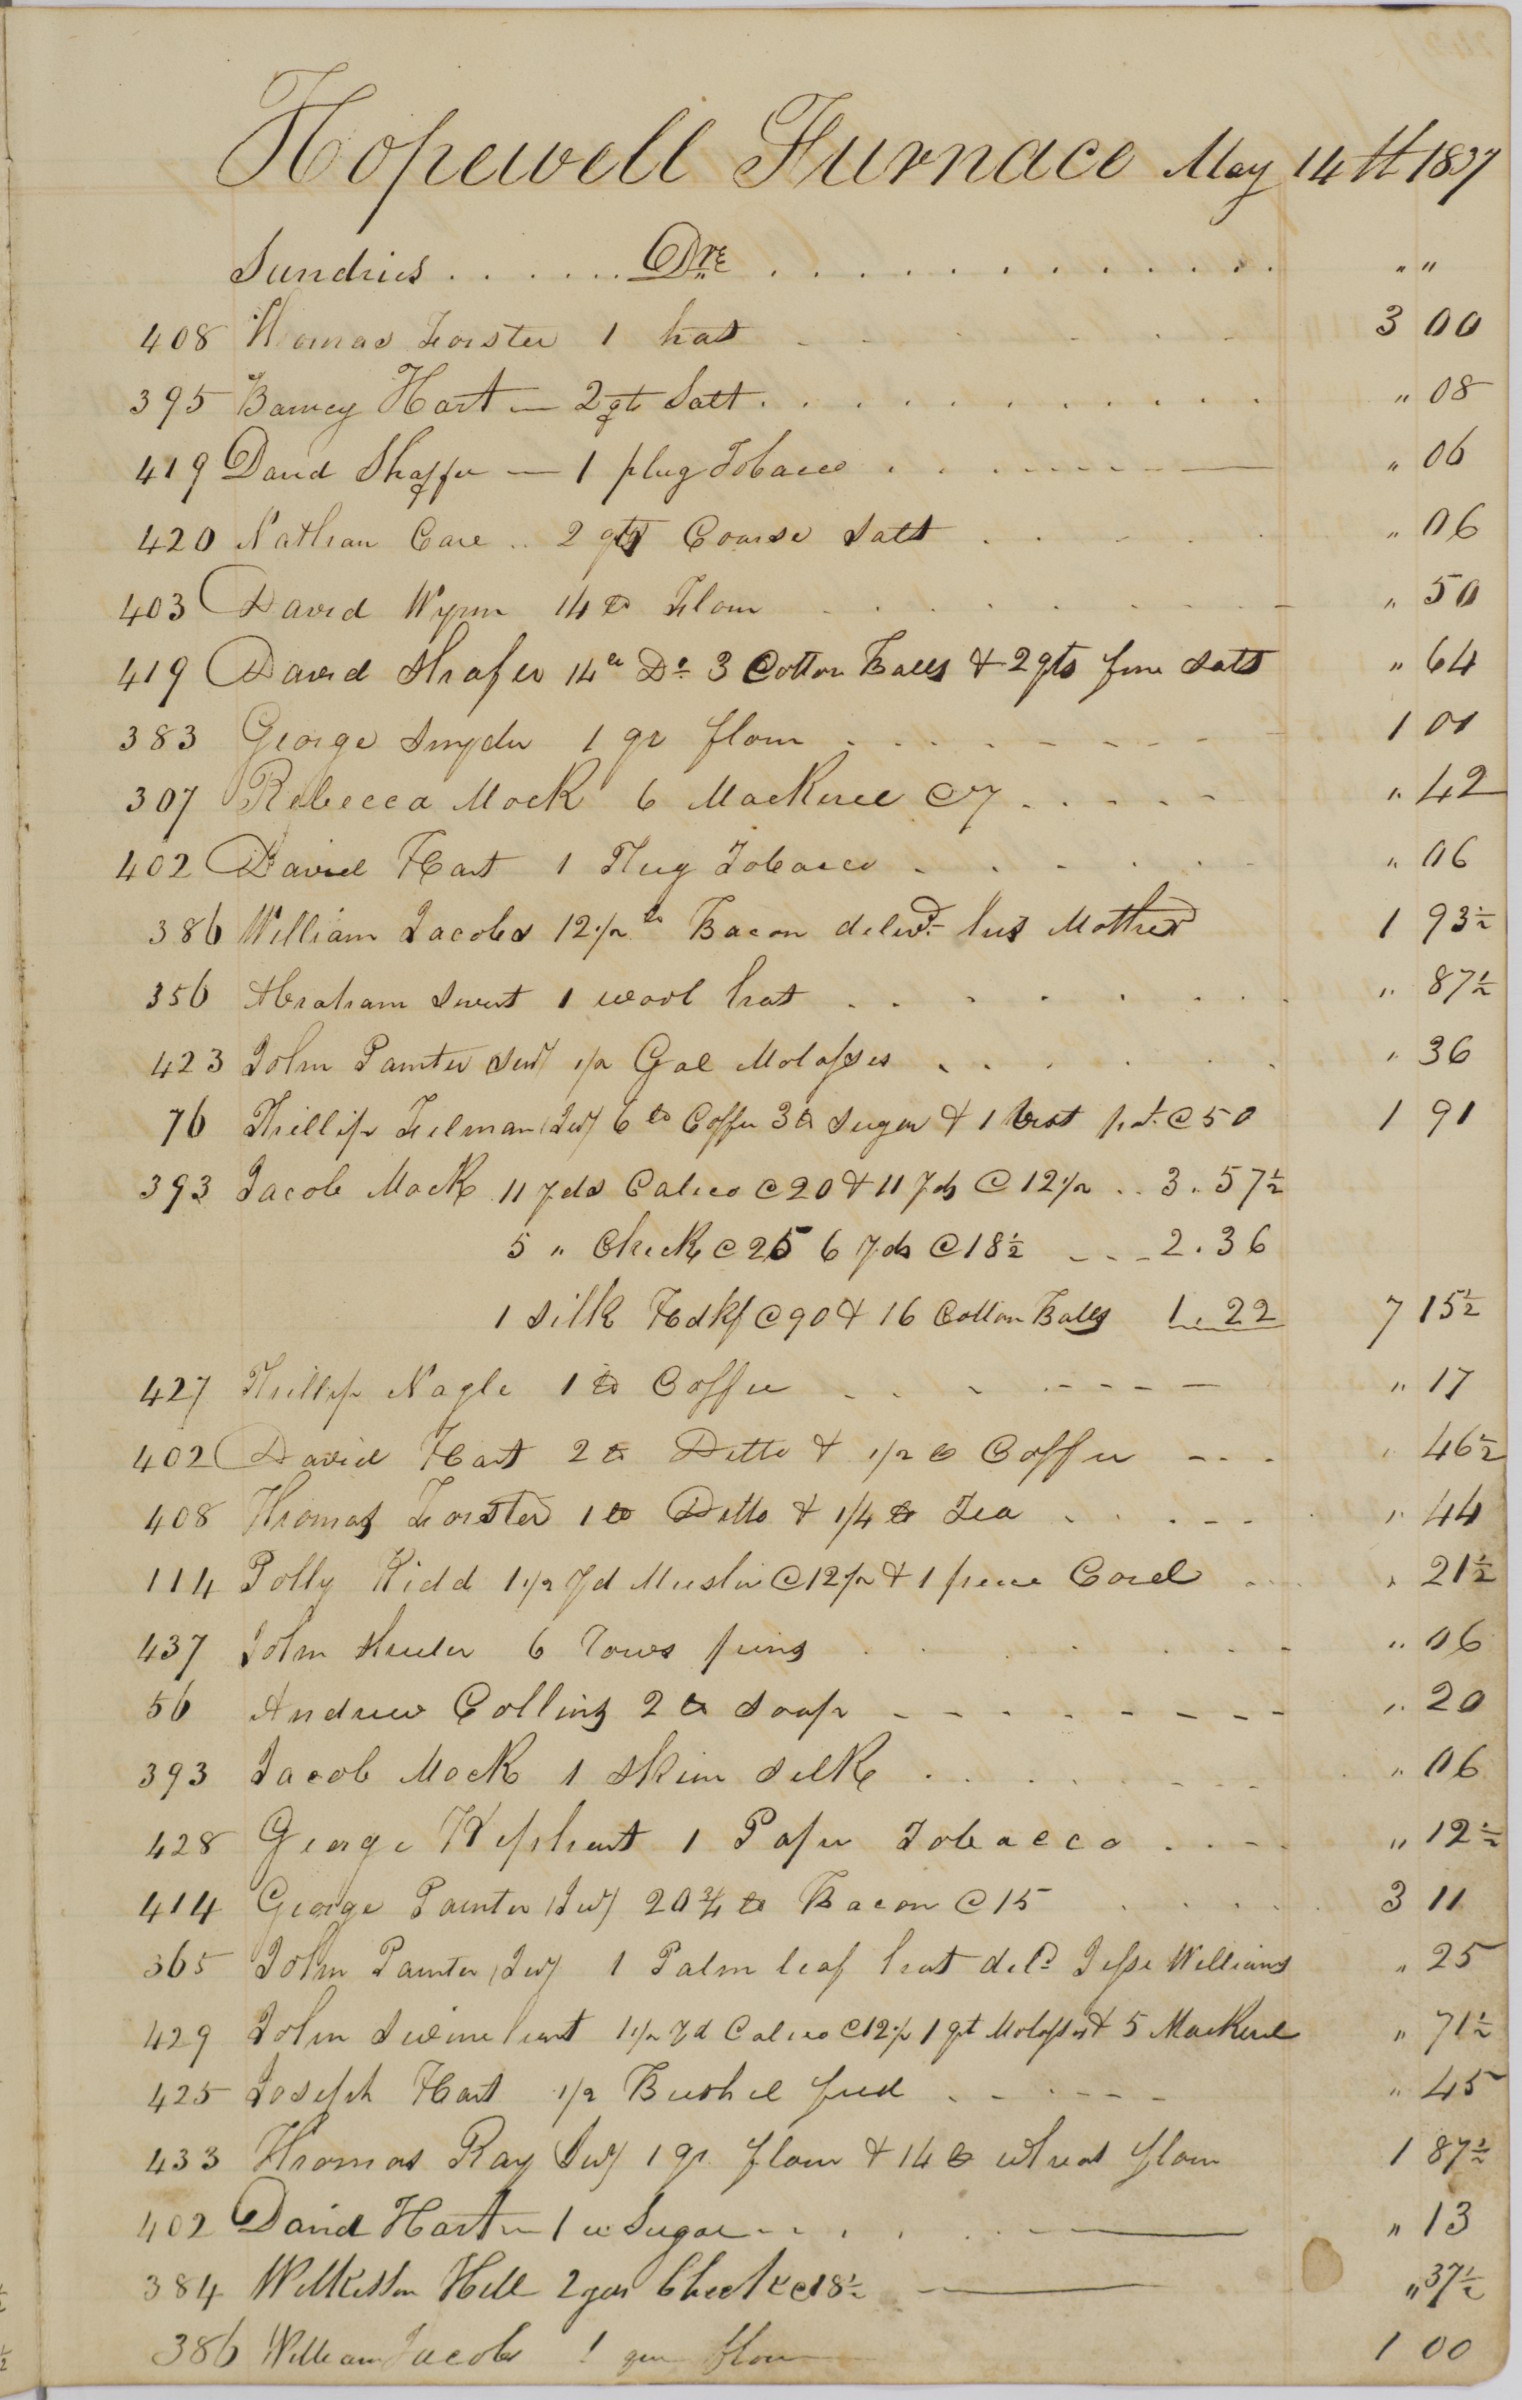 Hopewell Furnace May 14th 1837
Sundries . . . . . . Drs . . . . . . . . . . . . " "
408 Thomas Forster 1 hat 3 00
395 Barney Hart — 2 qts Salt " 08
419 David Shaffer — 1 plug Tobacco " 06
420 Nathan Care .. 2 qts Coarse Salt " 06
403 David Wynn 14 lb Flour " 50
419 David Shafer 14 lb Do 3 Cotton Balls & 2 qts fine Salt " 64
383 George Snyder 1 qr flour 1 01
307 Rebecca Mock 6 Mackerel @ 7 " 42
402 David Hart 1 Plug Tobacco " 06
386 William Jacobs 12 1/2 lb Bacon delivd his Mother 1 93 1/2
356 Abraham Swert 1 wool hat " 87 1/2
423 John Painter 1/2 Gal Molasses " 36
76 Phillip Filman (Jur) 6 lb Coffee 3 lb Sugar & 1 hat @ 50 1 91
393 Jacob Mock 11 yds Calico @ 20 & 11 yds @ 12 1/2 .. 3.57 1/2
5 " Check @ 25 6 yds @ 18 1/2 2.36
1 Silk Hdkf @ 90 & 16 Cotton Balls 1.22 7 15 1/2
427 Phillip Nagle 1 lb Coffee " 17
402 David Hart 2 lb Ditto & 1/2 lb Coffee " 46 1/2
408 Thomas Forster 1 lb Ditto & 1/4 lb Tea " 44
114 Polly Kidd 1 1/2 yd Muslin @ 12 1/2 & 1 piece Cord " 21 1/2
437 John 6 rows pins " 06
56 Andrew Collins 2 lb Soap " 20
393 Jacob Mock 1 Skein Silk " 06
428 George Kephart 1 Paper Tobacco " 12 1/2
414 George Painter (Jur) 20 3/4 lb Bacon @ 15 3 11
365 John Painter (Jur) 1 Palm leaf hat deld Jesse Williams " 25
429 John Swinehart 1 1/2 yd Calico @ 12 1/2 1 qt Molasses & 5 Mackerel " 71 1/2
425 Joseph Hart 1/2 Bushel feed " 45
433 Thomas Ray (Jur) 1 qr flour & 14 lb wheat flour 1 87 1/2
402 David Hart — 1 lb Sugar " 13
384 Wilkisson Hill 2 yds Check @ 18 1/2 " 37 1/2
386 William Jacobs 1 qr flour 1 00